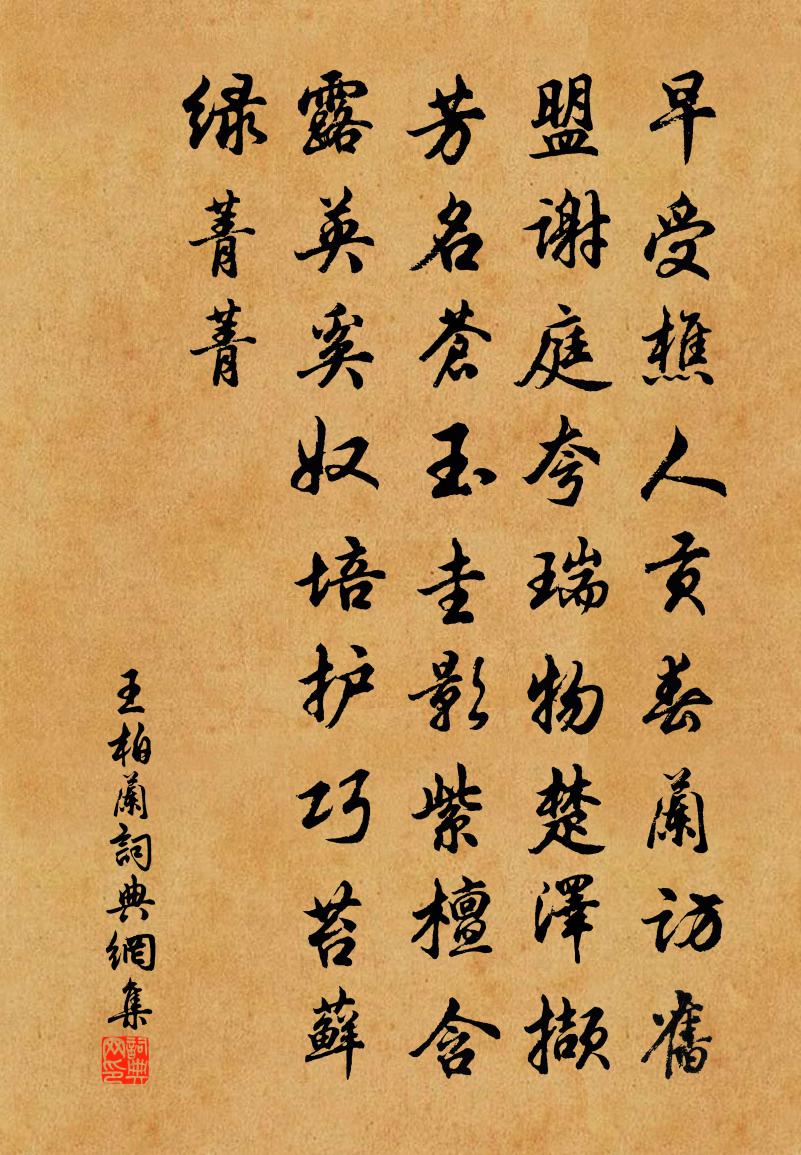 早受樵人贡春蘭访舊
盟谢庭夸瑞物楚澤撷
芳名苍玉圭影紫檀含
露英奚奴培护巧苔藓
绿菁菁
王柏蘭詞典網集
詞典网印